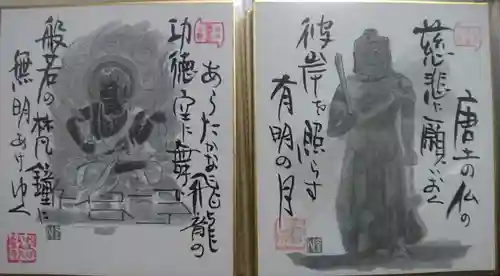 唐土の仏の
慈悲に願
彼岸を照らす
有明の月
あらたかな飛龍の
功徳空に舞
般若の梵鐘に
無明あけゆく